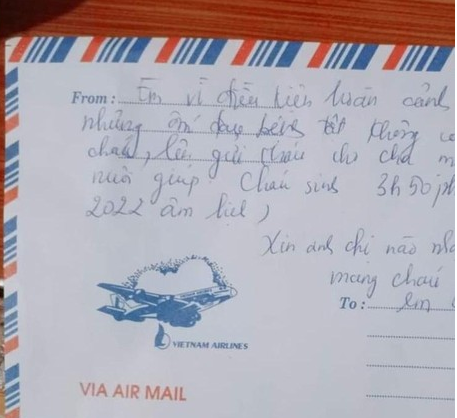 From : Em vì điều kiện hoàn cảnh
những ốm đau bệnh tật không
cháu, lên gửi cháu cho chù
nuôi giúp. Cháu sinh 3h50ph
2022 âm lịch )
Xin anh chị nào
mang cháu
To : em
VIETNAM AIRLINES
VIA AIR MAIL